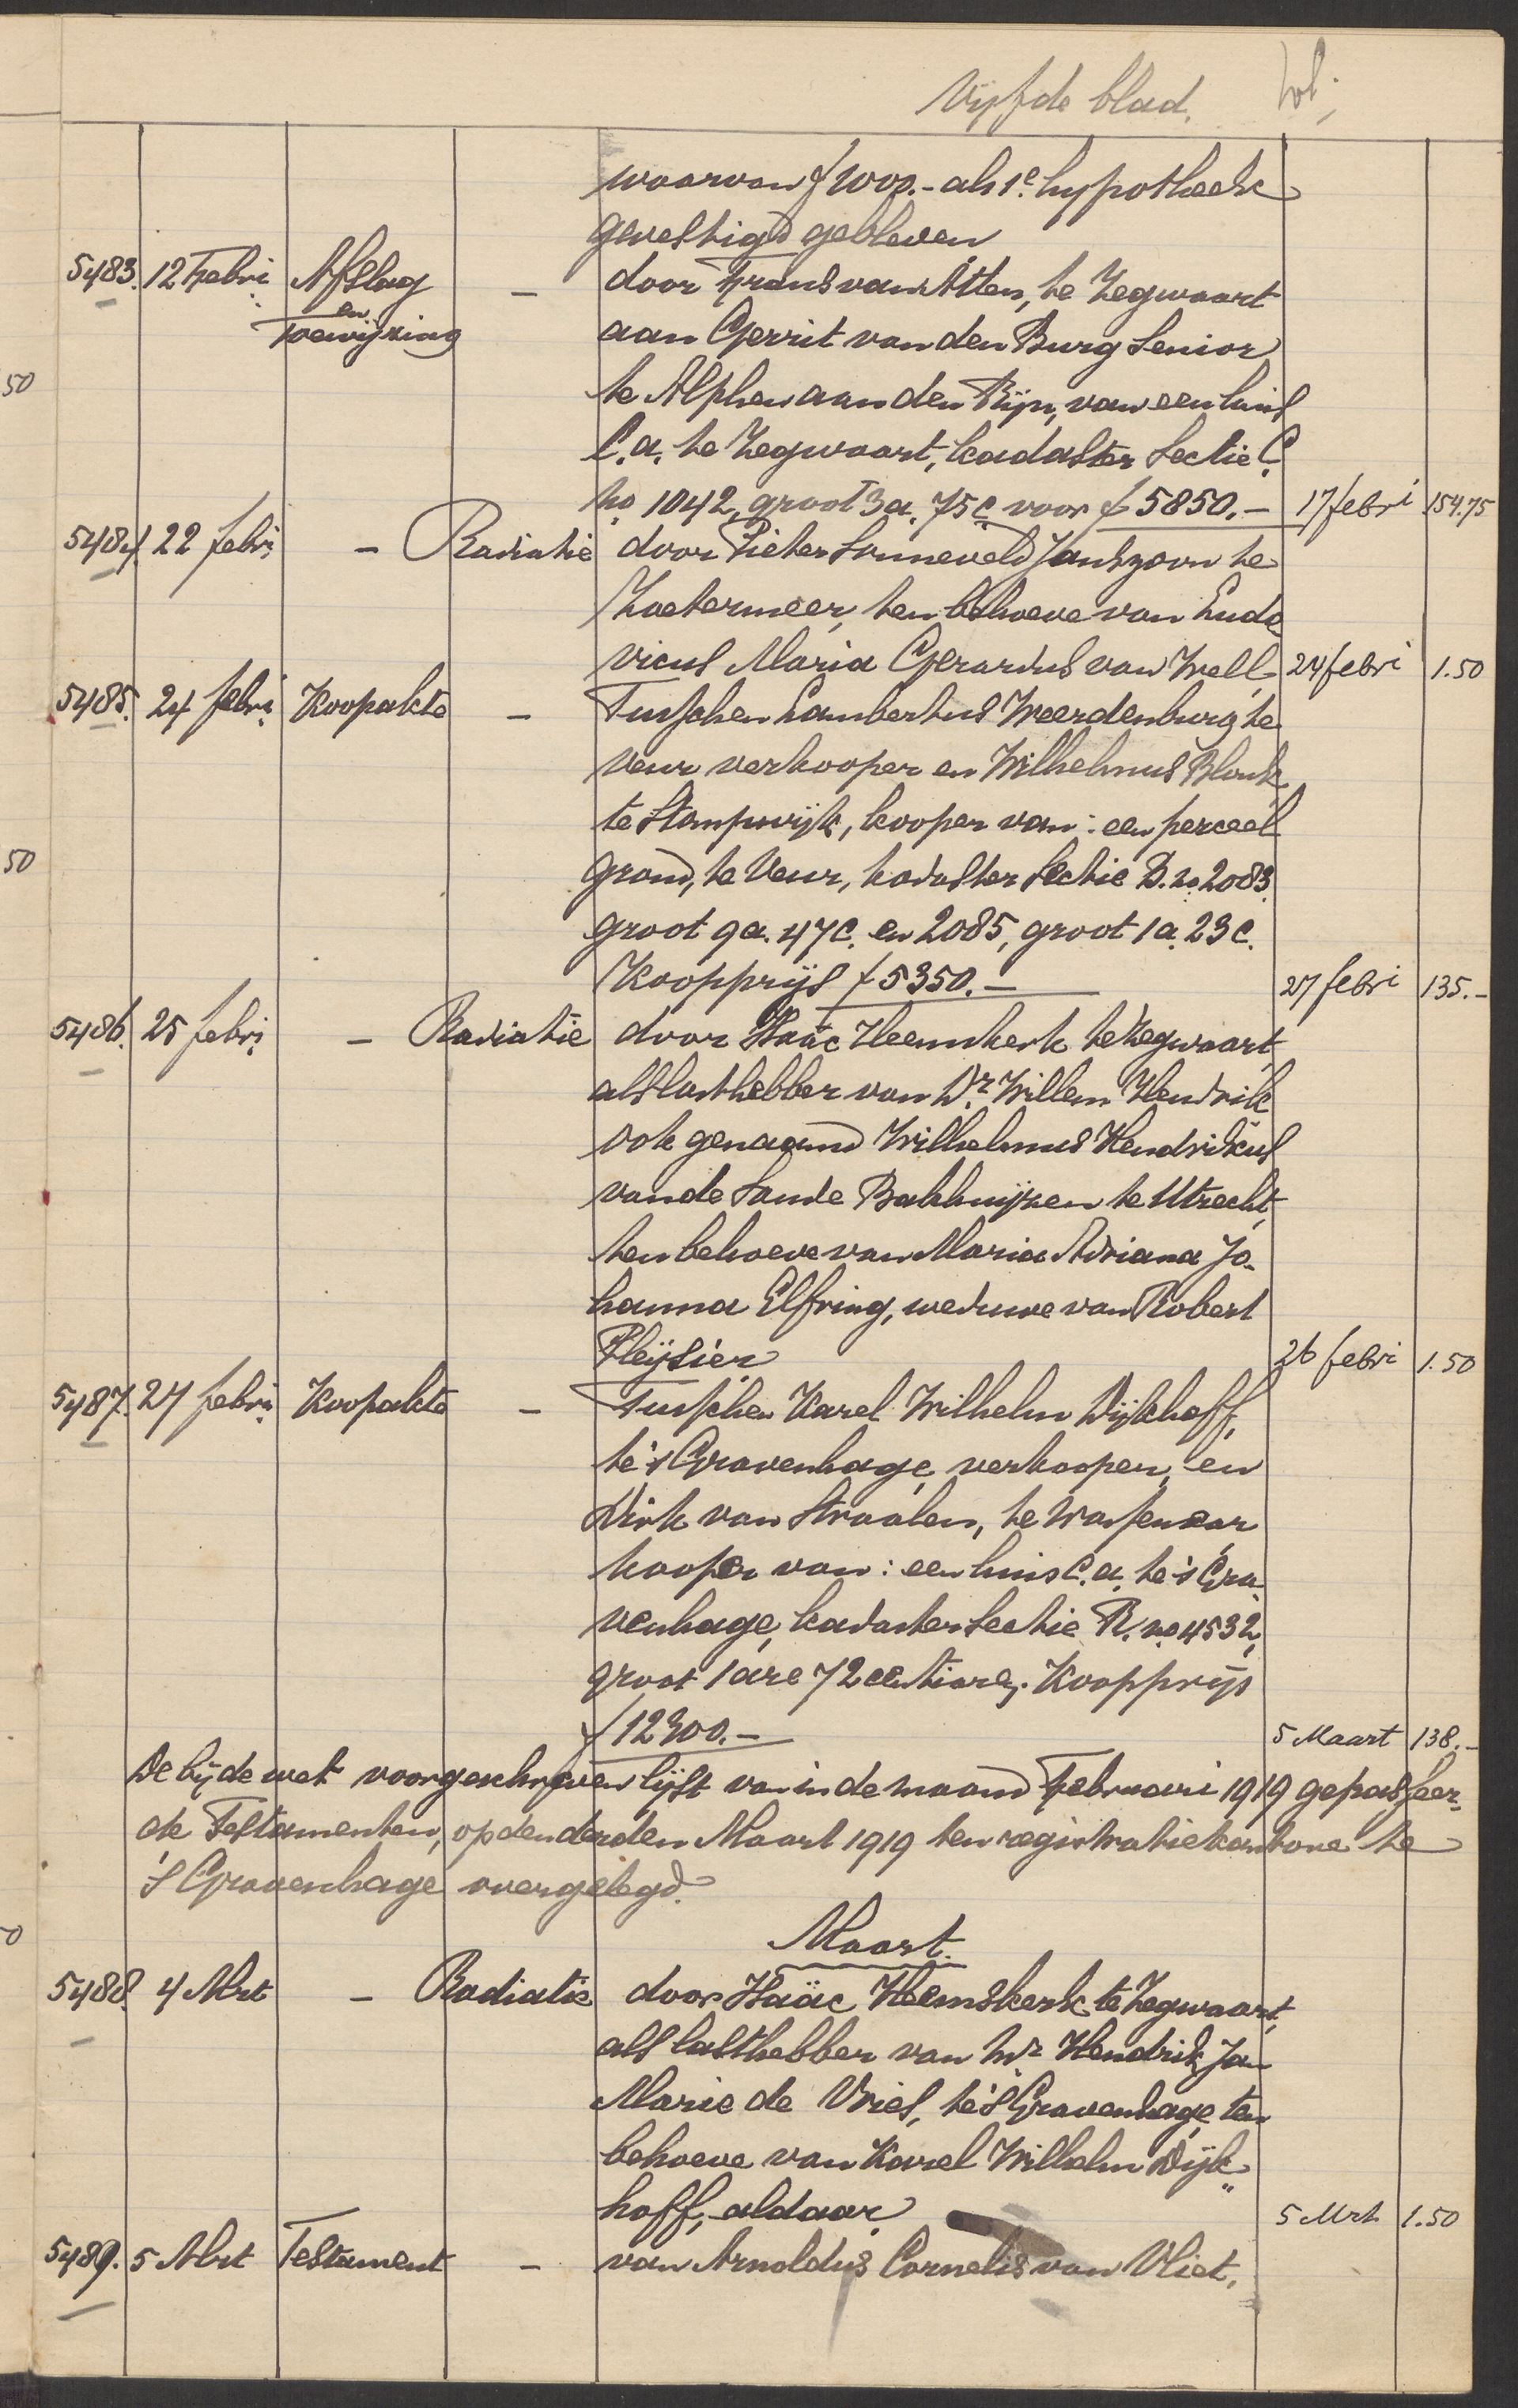 Vijfde blad.
waarvan f 1000.- als 1e. hypotheek
gevestigd gebleven
5483. 12 Febri. Afslag en Toewijzing — door Frans van Atten, te Zegwaart
aan Gerrit van den Burg Senior
te Alphen aan den Rijn, van een huis
C.a. te Zegwaart, kadaster Sectie C.
no. 1042, groot 3a. 75c. voor f 5850.- 17 febri 154.75
5484. 22 febri. — Radiatie door Pieter Sonneveld Janszoon te
Zoetermeer, ten behoeve van Ludo
vicus Maria Gerardus van Well 24 febri 1.50
5485. 24 febri. Koopakte — Tusschen Lambertus Weerdenburg te
Veur verkooper en Wilhelmus Blonk
te Stompwijk, kooper van: een perceel
grond, te Veur, kadaster Sectie D. no. 2083.
groot 9a. 47c. en 2085, groot 1a. 23c.
Koopprijs f 5350.- 27 febri 135.-
5486. 25 febri. — Radiatie door Isaäc Heemskerk te Zegwaart,
als lasthebber van Dr. Willem Hendrik
ook genaamd Wilhelmus Hendrikus
van de Sande Bakhuijzen te Utrecht,
ten behoeve van Maria Adriana Jo-
hanna Elfring, weduwe van Robert
Pleijsier 26 febri 1.50
5487. 27 febri. Koopakte — Tusschen Karel Wilhelm Dijkhoff,
te 's Gravenhage, verkooper, en
Dirk van Straalen, te Wassenaar,
kooper van: een huis C.a. te 's Gra-
venhage, kadaster Sectie R. no. 4532,
groot 1 are 72 centiare, Koopprijs
f 12300.- 5 Maart 138.-
De bij de wet voorgeschreven lijst van in de maand Februari 1919 gepasseer-
de Testamenten, op den derden Maart 1919 ten registratiekantore te
's Gravenhage overgelegd.
Maart.
5488. 4 Mrt — Radiatie door Isaäc Heemskerk te Zegwaart,
als lasthebber van Mr Hendrik Jan
Marie de Vries, te 's Gravenhage, ten
behoeve van Karel Wilhelm Dijk-
hoff, aldaar 5 Mrt 1.50
5489. 5 Mrt Testament — van Arnoldus Cornelis van Vliet,
50
50